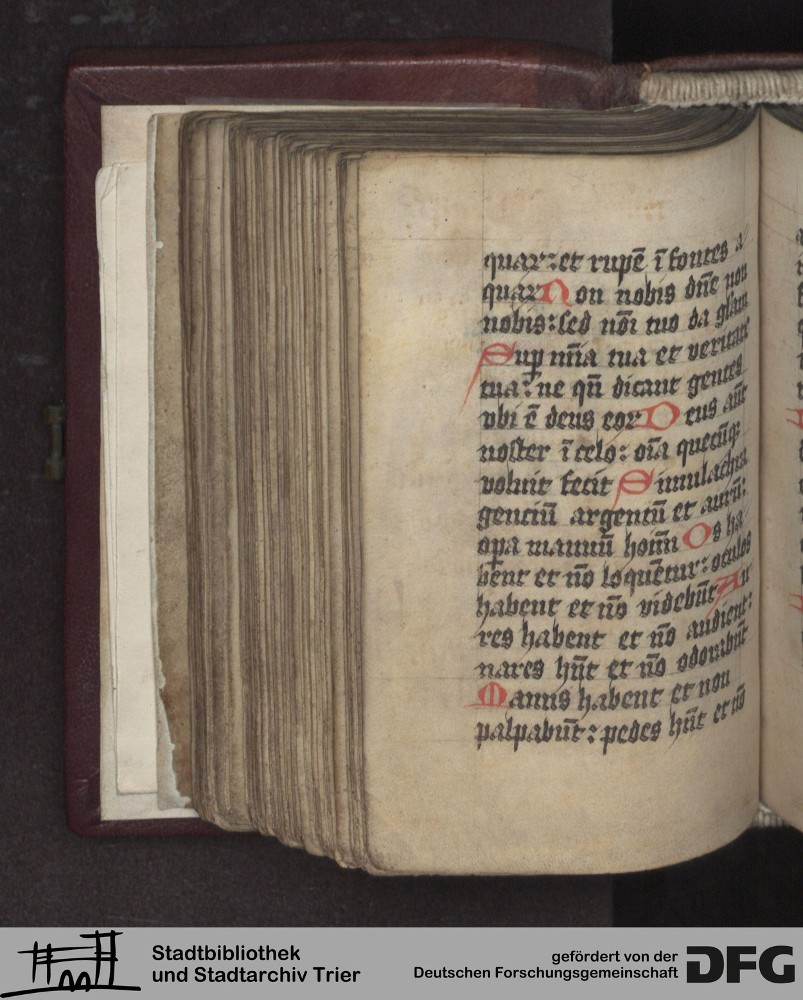 quar: et rupē ī fontes a
quar Non nobis dn̄e non
nobis: sed nōi tuo da glām
Sup mīa tua et veritate
tua: ne qn̄ dicant gentes
vbi ē deus eor Deus aūt
noster ī celo: oīa quecūq;
voluit fecit Simulachra
genciū argentū et aurū:
opa manuū hoīm Os ha
bent et nō loquētur: oculos
habent et nō videbūt Au
res habent et nō audient:
nares hn̄t et nō odorabūt
Manus habent et non
palpabūt: pedes hn̄t et nō
Stadtbibliothek
und Stadtarchiv Trier
gefördert von der
Deutschen Forschungsgemeinschaft
DFG